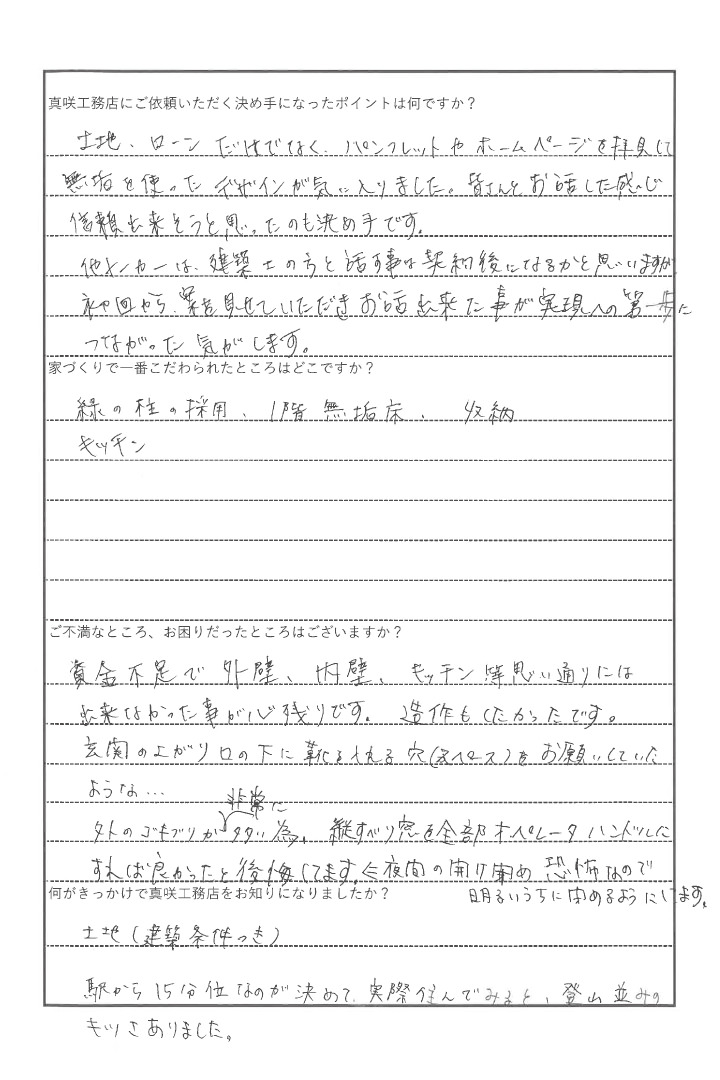 真咲工務店にご依頼いただく決め手になったポイントは何ですか？
土地、ローンだけでなく、パンフレットやホームページを拝見して
無垢を使ったデザインが気に入りました。皆さんとお話した感じ
信頼出来そうと思ったのも決め手です。
他メーカーは、建築士の方と話す事は契約後になるかと思いますが、
初回から、案を見せていただきお話出来た事が実現への第一歩に
つながった気がします。
家づくりで一番こだわられたところはどこですか？
緑の柱の採用、1階無垢床、収納
キッチン
ご不満なところ、お困りだったところはございますか？
資金不足で外壁、内壁、キッチン等思い通りには
出来なかった事が心残りです。造作もしたかったです。
玄関の上がり口の下に靴を入れる穴(スペース)をお願いしていた
ような…
外のゴキブリが非常に多い為、縦すべり窓を全部オペレータハンドルに
すれば良かったと後悔してます。⇐夜間の開け閉め恐怖なので
明るいうちに閉めるようにしてます。
何がきっかけで真咲工務店をお知りになりましたか？
土地(建築条件つき)
駅から15分位なのが決めて、実際住んでみると、登山並みの
キツさありました。